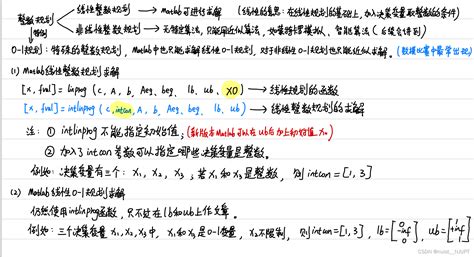 整数规划
特例
线性整数规划 → Matlab可进行求解 (线性的意思: 在线性规划的基础上, 加入决策变量取整数的条件)
非线性整数规划 → 无特定算法, 只能用近似算法, 如蒙特卡罗模拟、智能算法 (后续会讲到)
0-1规划: 特殊的整数规划, Matlab中也只能求解线性0-1规划, 对于非线性0-1规划也只能近似求解. (数模比赛中最常出现)
(1) Matlab线性整数规划求解
[x, fval] = linprog (c, A, b, Aeq, beq, lb, ub, X0) → 线性规划的函数
[x, fval] = intlinprog (c, intcon, A, b, Aeq, beq, lb, ub) → 线性整数规划的求解
注: ① intlinprog 不能指定初始值; (新版本Matlab可以在ub后加上初始值X0)
② 加入了intcon参数可以指定哪些决策变量是整数。
例如: 决策变量有三个: x1, x2, x3; 若x1和x3是整数, 则 intcon = [1, 3]
(2) Matlab线性0-1规划求解
仍然使用intlinprog函数, 只不过在lb和ub上作文章。
例如: 三个决策变量x1, x2, x3中, x1和x3是0-1变量, x2不限制, 则intcon=[1, 3], lb = [0 -inf 0], ub = [1 +inf 1]